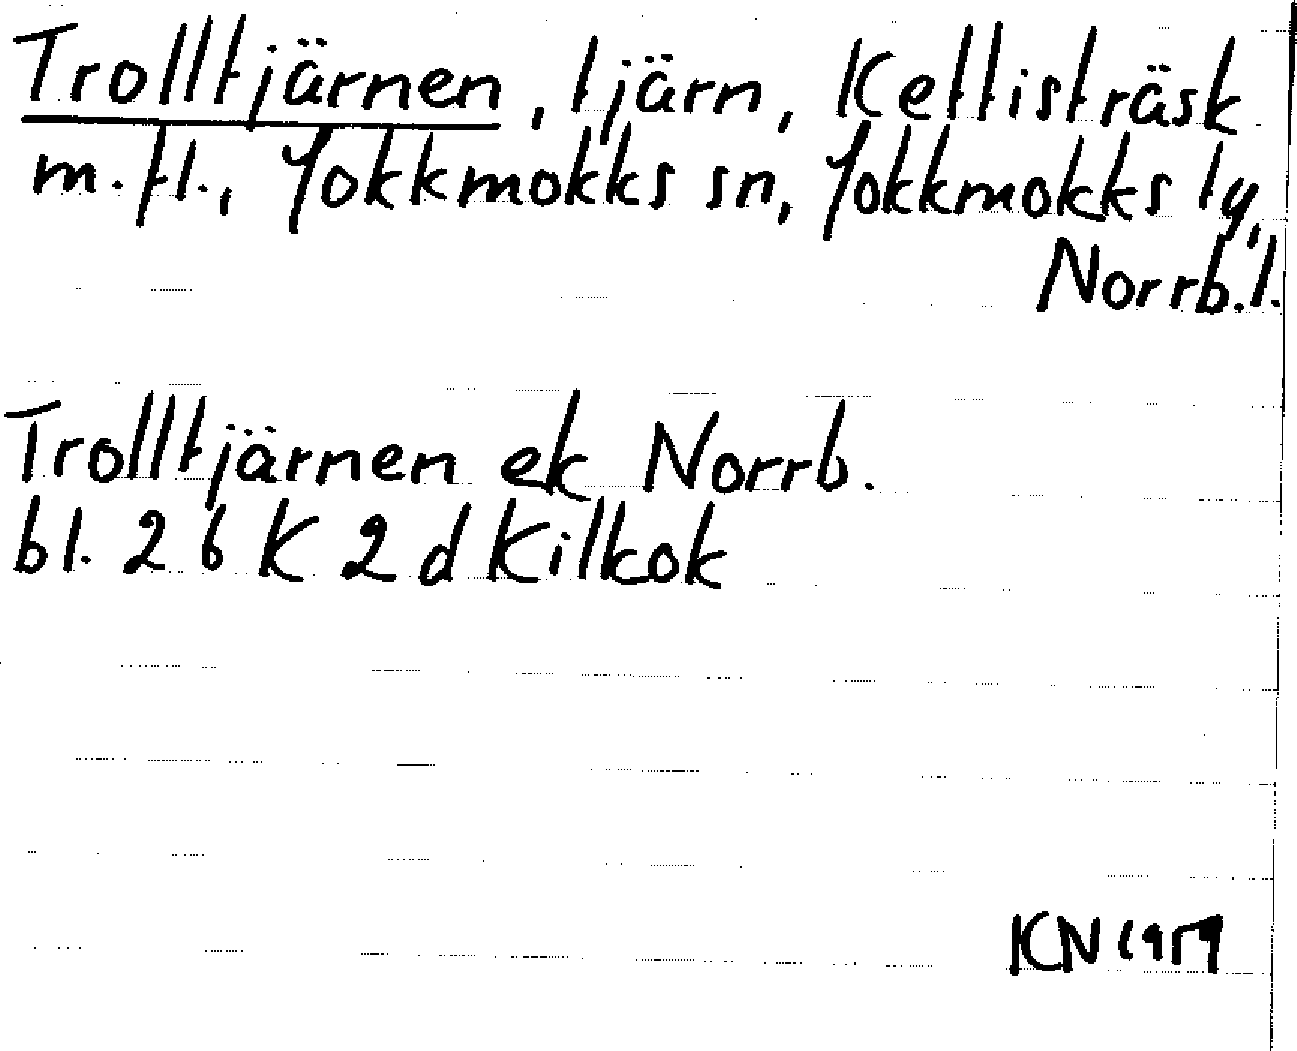 Trolltjärnen, tjärn, Kettisträsk
m. fl., Jokkmokks sn, Jokkmokks ly,
Norrb. l.
Trolltjärnen ek Norrb.
bl. 26 K 2 d Kilkok
KN